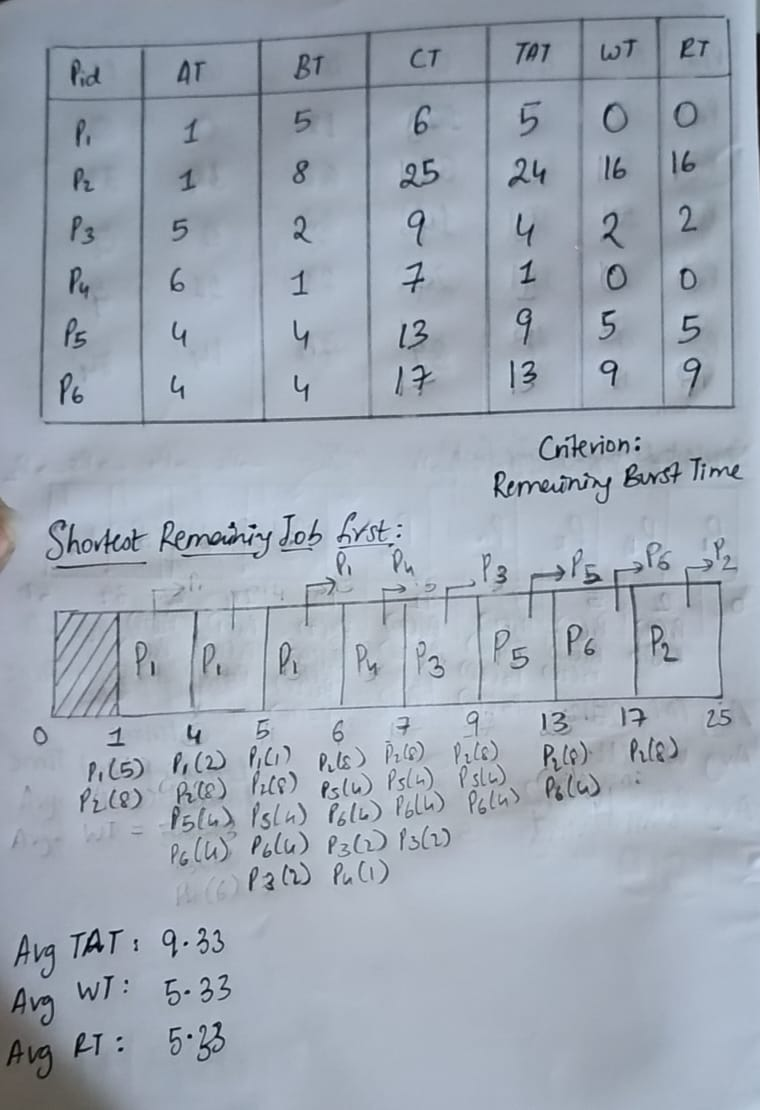 Pid AT BT CT TAT WT RT
P1 1 5 6 5 0 0
P2 1 8 25 24 16 16
P3 5 2 9 4 2 2
P4 6 1 7 1 0 0
P5 4 4 13 9 5 5
P6 4 4 17 13 9 9
Criterion:
Remaining Burst Time
Shortest Remaining Job first:
P1 P4 P3 P5 P6 P2
P1 P1 P1 P4 P3 P5 P6 P2
0 1 4 5 6 7 9 13 17 25
P1(5) P1(2) P1(1) P2(8) P2(8) P2(8) P2(8) P2(8)
P2(8) P2(8) P2(8) P5(4) P5(4) P5(4) P6(4)
P5(4) P5(4) P6(4) P6(4) P6(4)
P6(4) P6(4) P3(2) P3(2)
P3(2) P4(1)
Avg TAT: 9.33
Avg WT: 5.33
Avg RT: 5.33